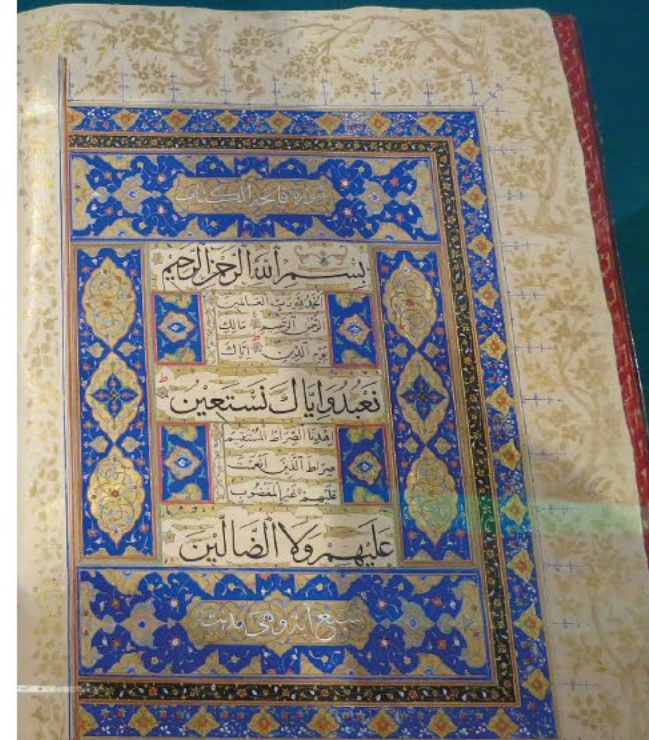 سورة فاتحة الكتاب
بِسْمِ اللَّهِ الرَّحْمَنِ الرَّحِيمِ
الْحَمْدُ لِلَّهِ رَبِّ الْعَالَمِينَ
الرَّحْمَنِ الرَّحِيمِ مَالِكِ
يَوْمِ الدِّينِ إِيَّاكَ
نَعْبُدُ وَإِيَّاكَ نَسْتَعِينُ
اِهْدِنَا الصِّرَاطَ الْمُسْتَقِيمَ
صِرَاطَ الَّذِينَ أَنْعَمْتَ
عَلَيْهِمْ غَيْرِ الْمَغْضُوبِ
عَلَيْهِمْ وَلَا الضَّالِّينَ
سبع آية وهي مدنية